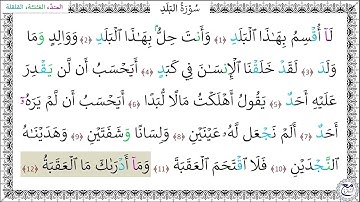 المدّ، الغنّة، القلقلة
سُورَةُ البَلَدِ
لَآ أُقْسِمُ بِهَٰذَا ٱلْبَلَدِ ﴿١﴾ وَأَنتَ حِلٌّۢ بِهَٰذَا ٱلْبَلَدِ ﴿٢﴾ وَوَالِدٍ وَمَا
وَلَدَ ﴿٣﴾ لَقَدْ خَلَقْنَا ٱلْإِنسَٰنَ فِى كَبَدٍ ﴿٤﴾ أَيَحْسَبُ أَن لَّن يَقْدِرَ
عَلَيْهِ أَحَدٌ ﴿٥﴾ يَقُولُ أَهْلَكْتُ مَالًا لُّبَدًا ﴿٦﴾ أَيَحْسَبُ أَن لَّمْ يَرَهُۥٓ
أَحَدٌ ﴿٧﴾ أَلَمْ نَجْعَل لَّهُۥ عَيْنَيْنِ ﴿٨﴾ وَلِسَانًا وَشَفَتَيْنِ ﴿٩﴾ وَهَدَيْنَٰهُ
ٱلنَّجْدَيْنِ ﴿١٠﴾ فَلَا ٱقْتَحَمَ ٱلْعَقَبَةَ ﴿١١﴾ وَمَآ أَدْرَىٰكَ مَا ٱلْعَقَبَةُ ﴿١٢﴾